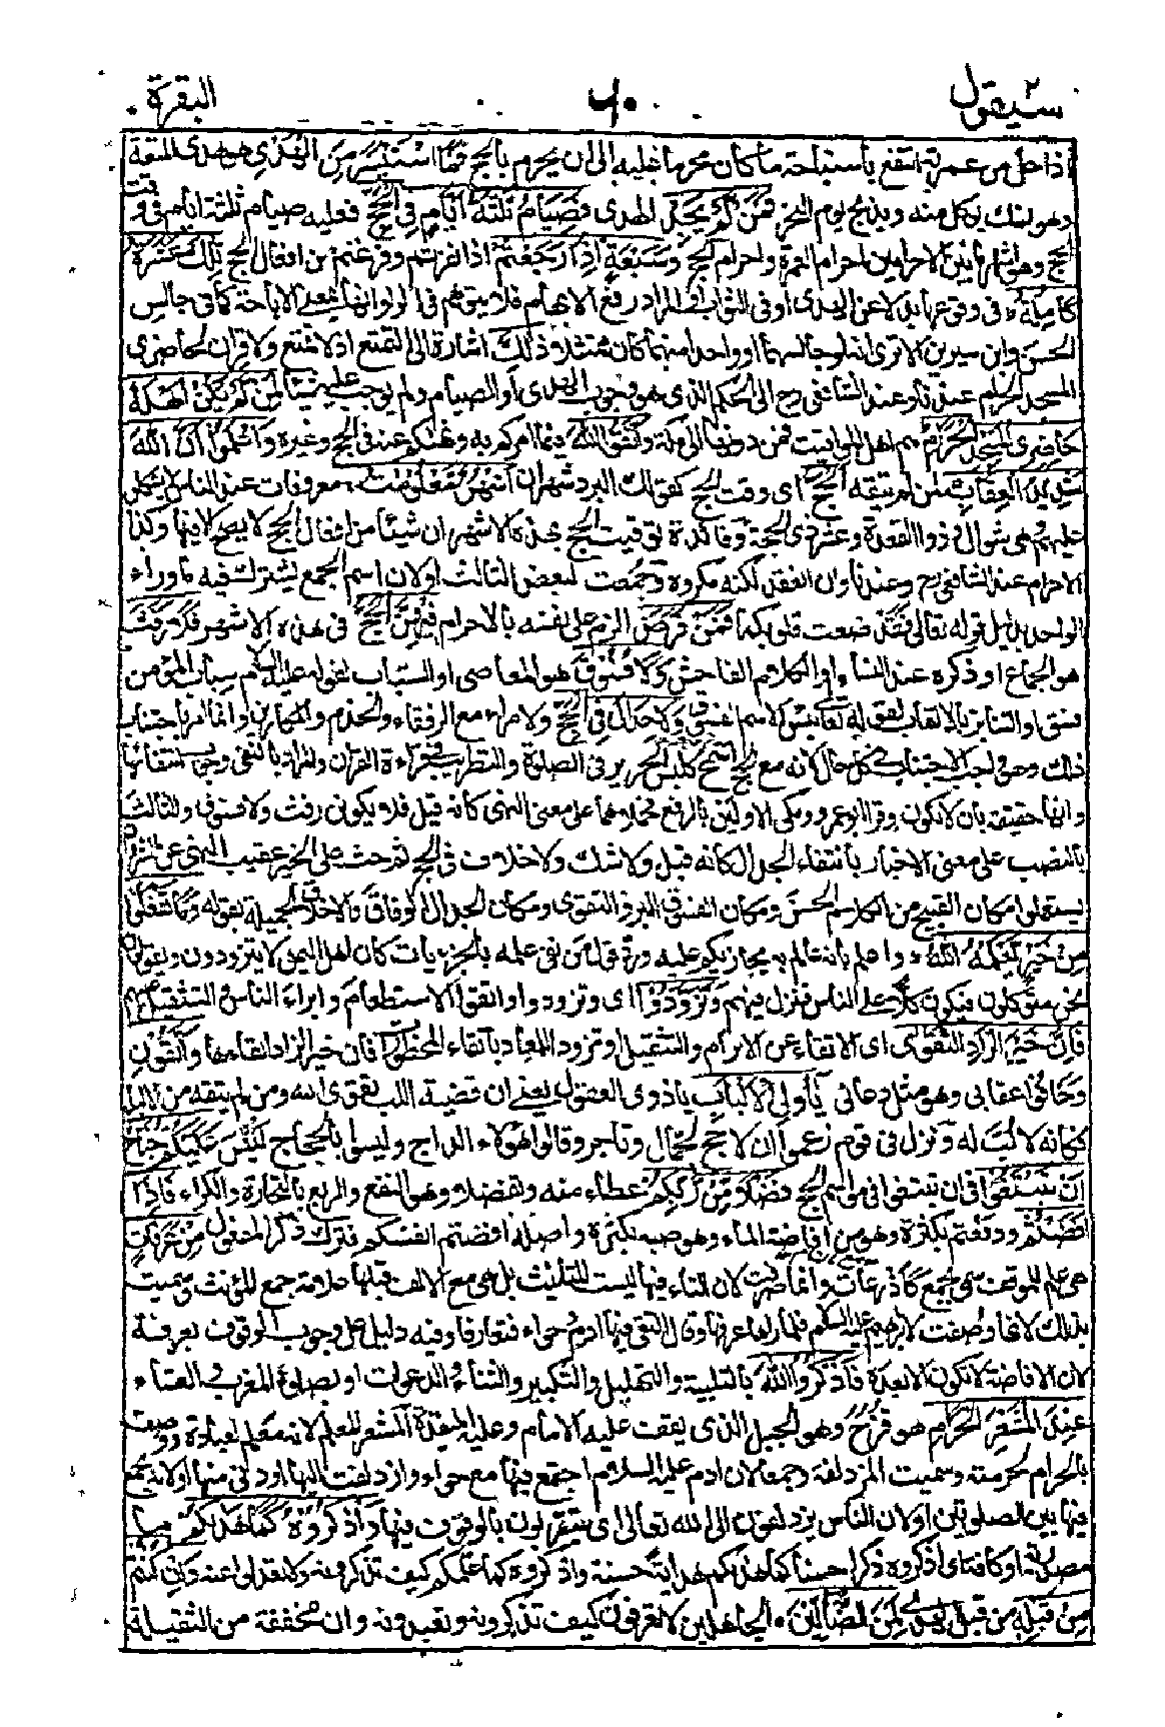 سيقول ٢ ٦٠ البقرة
اذا حل من عمرته انتفع باستباحة ما كان محرما عليه الى ان يحرم بالحج فَمَا اسْتَيْسَرَ مِنَ الْهَدْيِ هو هدى المتعة
وهو نسك يؤكل منه ويذبح يوم النحر فَمَنْ لَمْ يَجِدْ الهدى فَصِيَامُ ثَلٰثَةِ اَيَّامٍ فِى الْحَجِّ فعليه صيام ثلثة ايام فى وقت
الحج وهو اشهره ما بين الاحرامين احرام العمرة واحرام الحج وَسَبْعَةٍ اِذَا رَجَعْتُمْ اذا نفرتم وفرغتم من افعال الحج تِلْكَ عَشَرَةٌ
كَامِلَةٌ فى وقوعها بدلا عن الهدى او فى الثواب او المراد رفع الابهام فلا يتوهم فى الواو انها بمعنى الاباحة كما فى جالس
الحسن وابن سيرين الا ترى انه لو جالسهما او واحدا منهما كان ممتثلا ذٰلِكَ اشارة الى التمتع اذ لا تمتع ولا قران لحاضرى
المسجد الحرام عندنا وعند الشافعى رح الى الحكم الذى هو وجوب الهدى او الصيام ولم يوجب عليهم شيئا لِمَنْ لَمْ يَكُنْ اَهْلُهُ
حَاضِرِى الْمَسْجِدِ الْحَرَامِ هم اهل المواقيت فمن دونها الى مكة وَاتَّقُوا اللّٰهَ فيما امركم به ونهاكم عنه فى الحج وغيره وَاعْلَمُوْا اَنَّ اللّٰهَ
شَدِيْدُ الْعِقَابِ لمن لم يتقه اَلْحَجُّ اى وقت الحج كقولك البرد شهران اَشْهُرٌ مَّعْلُوْمٰتٌ معروفات عند الناس لا يشكلن
عليهم وهى شوال وذو القعدة وعشر ذى الحجة وفائدة توقيت الحج بهذه الاشهر ان شيئا من افعال الحج لا يصح الا فيها وكذا
الاحرام عند الشافعى رح وعندنا وان انعقد لكنه مكروه وجمعت لبعض الثالث او لان اسم الجمع يشترك فيه ما وراء
الواحد بدليل قوله تعالى فقد صغت قلوبكما فَمَنْ فَرَضَ الزم على نفسه بالاحرام فِيْهِنَّ الْحَجَّ فى هذه الاشهر فَلَا رَفَثَ
هو الجماع او ذكره عند النساء او الكلام الفاحش وَلَا فُسُوْقَ هو المعاصى او السباب لقوله عليه السلام سباب المؤمن
فسوق او التنابز بالالقاب لقوله تعالى بئس الاسم الفسوق وَلَا جِدَالَ فِى الْحَجِّ ولا مراء مع الرفقاء والخدم والمكارين وانما امر باجتناب
ذلك وهو واجب الاجتناب فى كل حال لانه مع الحج اسمج كلبس الحرير فى الصلوة والتطريب فى قراءة القران والمراد بالنفى وجوب انتفائها
وانها حقيقة بان لا تكون وقرا ابو عمرو ومكى الاولين بالرفع فحملاهما على معنى النهى كانه قيل فلا يكونن رفث ولا فسوق والثالث
بالنصب على معنى الاخبار بانتفاء الجدال كانه قيل ولا شك ولا خلاف فى الحج ثم حث على الخير عقيب النهى عن الشر وان
يستعملوا مكان القبيح من الكلام الحسن ومكان الفسوق البر والتقوى ومكان الجدال الوفاق والاخلاق الجميلة بقوله وَمَا تَفْعَلُوْا
مِنْ خَيْرٍ يَّعْلَمْهُ اللّٰهُ واعلم بانه عالم به يجازيكم عليه ورد قول من نفى علمه بالجزئيات كان اهل اليمن لا يتزودون ويقولون
نحن متوكلون فيكونون كلا على الناس فنزل فيهم وَتَزَوَّدُوْا اى وتزودوا واتقوا الاستطعام وابرام الناس والتثقيل عليهم
فَاِنَّ خَيْرَ الزَّادِ التَّقْوٰى اى الاتقاء عن الابرام والتثقيل او تزودوا للمعاد باتقاء المحظورات فان خير الزاد اتقاءها وَاتَّقُوْنِ
وخافوا عقابى وهو مثل دعانى يٰاُولِى الْاَلْبَابِ يا ذوى العقول يعنى ان قضية اللب تقوى الله ومن لم يتقه من الالباء
فكانه لا لب له ونزل فى قوم زعموا ان لا حج لجمال وتاجر وقالوا هؤلاء الداج وليسوا بالحاج لَيْسَ عَلَيْكُمْ جُنَاحٌ
اَنْ تَبْتَغُوْا فى ان تبتغوا فى مواسم الحج فَضْلًا مِّنْ رَّبِّكُمْ عطاء منه وتفضلا وهو النفع والربح بالتجارة والكراء فَاِذَا
اَفَضْتُمْ دفعتم بكثرة وهو من افاضة الماء وهو صبه بكثرة واصله افضتم انفسكم فترك ذكر المفعول مِنْ عَرَفَاتٍ
هى علم للموقف سمى بجمع كاذرعات وانما صرفت لان التاء فيها ليست للتانيث بل هى مع الالف قبلها علامة جمع المؤنث وسميت
بذلك لانها وصفت لابراهيم عليه السلام فلما راها عرفها وقيل التقى فيها ادم وحواء فتعارفا وفيه دليل على وجوب الوقوف بعرفة
لان الافاضة لا تكون الا بعده فَاذْكُرُوا اللّٰهَ بالتلبية والتهليل والتكبير والثناء والدعوات او بصلوة المغرب والعشاء
عِنْدَ الْمَشْعَرِ الْحَرَامِ هو قزح وهو الجبل الذى يقف عليه الامام وعليه الميقدة المشعر المعلم لانه معلم لعبادة ووصف
بالحرام لحرمته وسميت المزدلفة وجمعا لان ادم عليه السلام اجتمع فيها مع حواء وازدلف اليها اى دنى منها او لانه يجمع
فيها بين الصلوتين او لان الناس يزدلفون الى الله تعالى اى يتقربون بالوقوف فيها وَاذْكُرُوْهُ كَمَا هَدٰىكُمْ ما
مصدرية او كافة اى اذكروه ذكرا حسنا كما هداكم هداية حسنة واذكروه كما علمكم كيف تذكرونه ولا تعدلوا عنه وَاِنْ كُنْتُمْ
مِنْ قَبْلِهٖ من قبل الهدى لَمِنَ الضَّآلِّيْنَ الجاهلين لا تعرفون كيف تذكرونه وتعبدونه وان مخففة من الثقيلة